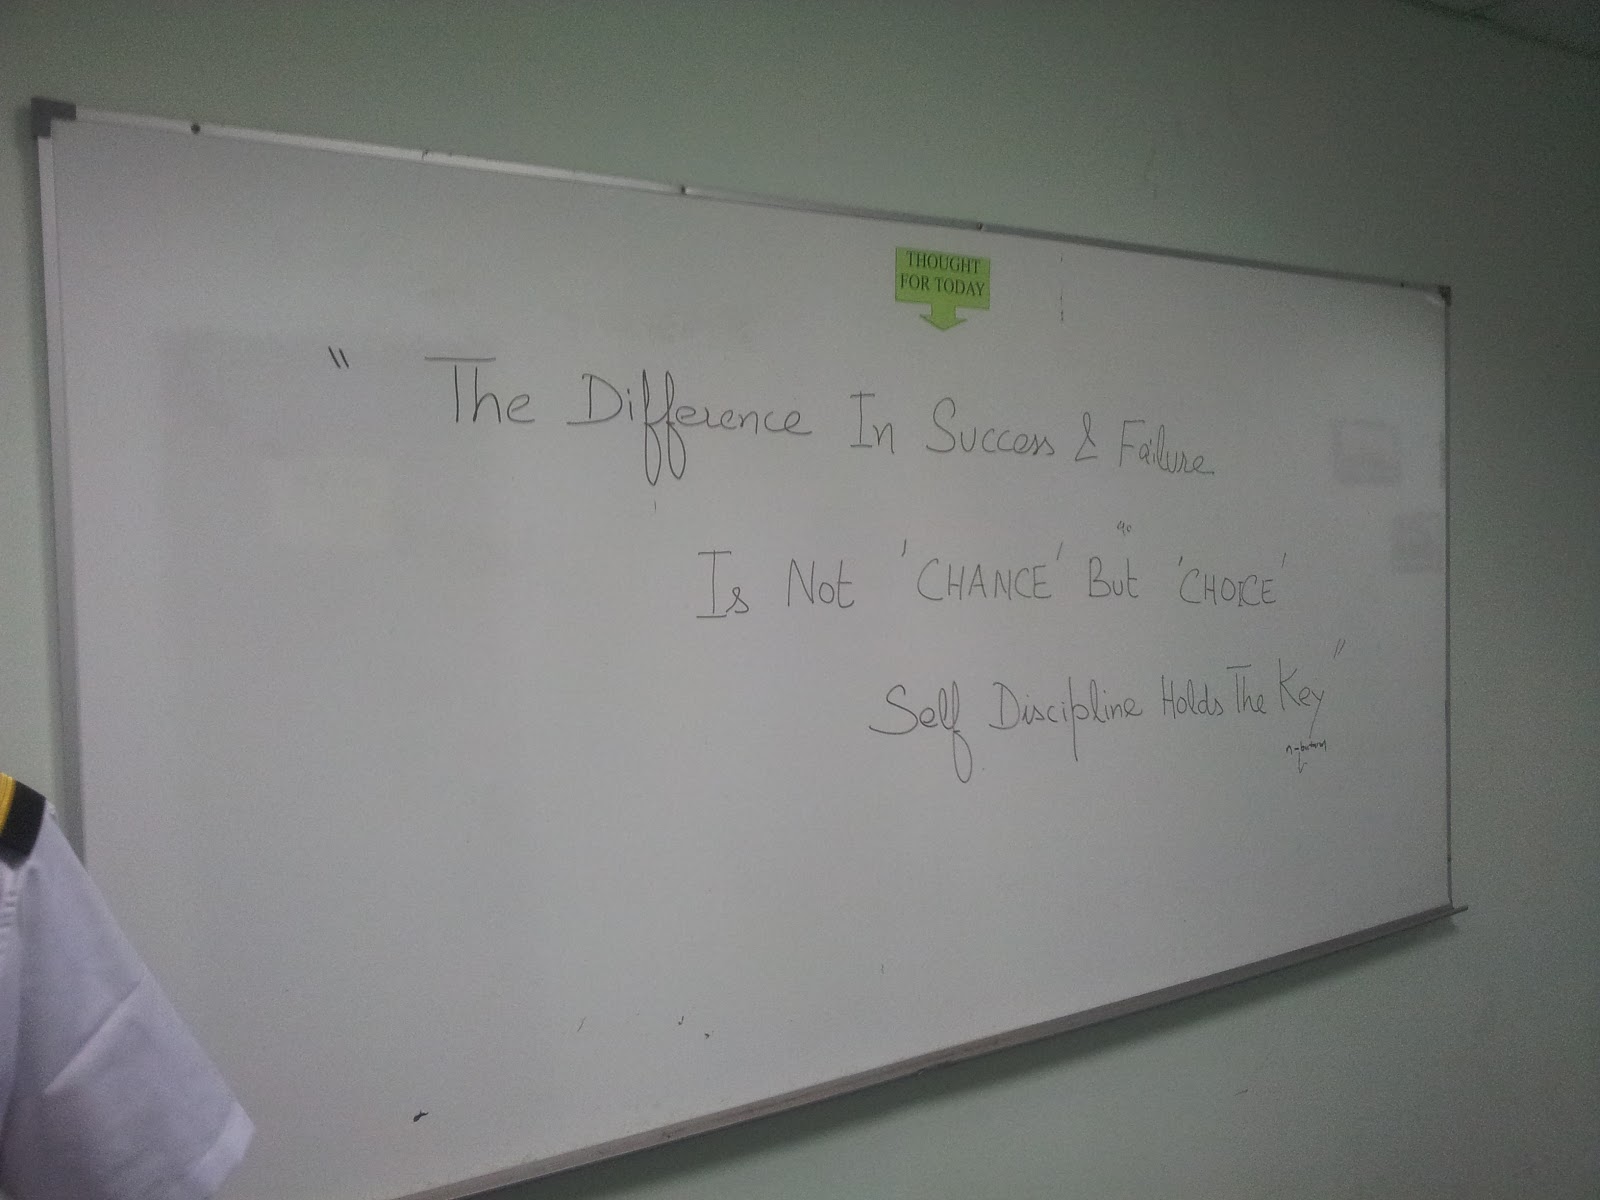 THOUGHT
FOR TODAY
" The Difference In Success & Failure
Is Not 'CHANCE' But 'CHOICE'
Self Discipline Holds The Key"